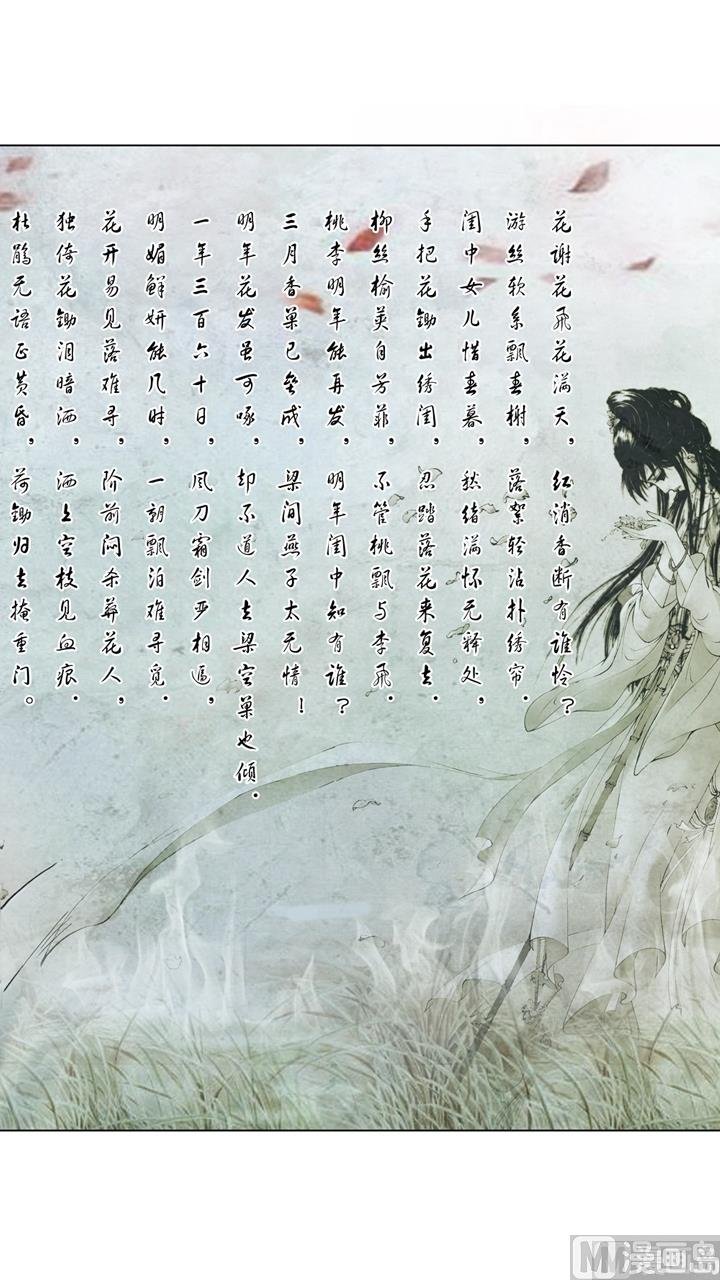 花谢花飞花满天，红消香断有谁怜？
游丝软系飘春榭，落絮轻沾扑绣帘．
闺中女儿惜春暮，愁绪满怀无释处，
手把花锄出绣闺，忍踏落花来复去．
柳丝榆荚自芳菲，不管桃飘与李飞．
桃李明年能再发，明年闺中知有谁？
三月香巢已垒成，梁间燕子太无情！
明年花发虽可啄，却不道人去梁空巢也倾．
一年三百六十日，风刀霜剑严相逼，
明媚鲜妍能几时，一朝飘泊难寻觅．
花开易见落难寻，阶前闷杀葬花人，
独倚花锄泪暗洒，洒上空枝见血痕．
杜鹃无语正黄昏，荷锄归去掩重门。
漫画岛